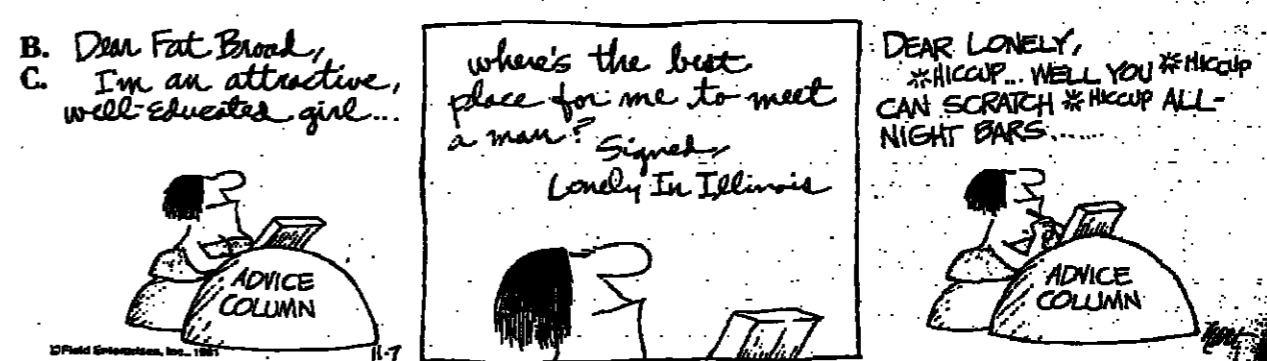 B.
C.
Dear Fat Broad,
I'm an attractive,
well-educated girl...
ADVICE
COLUMN
©Field Enterprises, Inc., 1981
11-7
where's the best
place for me to meet
a man?
Signed,
Lonely In Illinois
DEAR LONELY,
*HICCUP... WELL YOU *HICCUP
CAN SCRATCH *HICCUP ALL-
NIGHT BARS.......
ADVICE
COLUMN